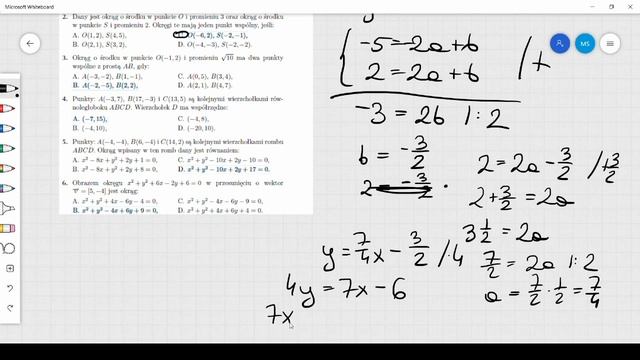 Microsoft Whiteboard
2. Dany jest okrąg o środku w punkcie O i promieniu 3 oraz okrąg o środku
w punkcie S i promieniu 2. Okręgi te mają jeden punkt wspólny, jeśli:
A. O(1, 2), S(4, 5), O(−6, 2), S(−2, −1),
B. O(2, 1), S(3, 2), D. O(−4, −3), S(−2, −2).
3. Okrąg o środku w punkcie O(−1, 2) i promieniu √10 ma dwa punkty
wspólne z prostą AB, gdy:
A. A(−3, −2), B(1, −1), C. A(0, 5), B(3, 4),
B. A(−2, −5), B(2, 2), D. A(2, 1), B(4, 7).
4. Punkty: A(−3, 7), B(17, −3) i C(13, 5) są kolejnymi wierzchołkami rów-
noległoboku ABCD. Wierzchołek D ma współrzędne:
A. (−7, 15), C. (−4, 8),
B. (−4, 10), D. (−20, 10).
5. Punkty: A(−4, −4), B(6, −4) i C(14, 2) są kolejnymi wierzchołkami rombu
ABCD. Okrąg wpisany w ten romb dany jest równaniem:
A. x² − 8x + y² + 2y + 1 = 0, C. x² + y² − 10x + 2y − 10 = 0,
B. x² − 8x + y² + 2y + 8 = 0, D. x² + y² − 10x + 2y + 17 = 0.
6. Obrazem okręgu x² + y² + 6x − 2y + 6 = 0 w przesunięciu o wektor
v = [5, −4] jest okrąg:
A. x² + y² + 4x − 6y − 4 = 0, C. x² + y² − 4x − 6y − 9 = 0,
B. x² + y² − 4x + 6y + 9 = 0, D. x² + y² + 4x + 6y + 4 = 0.
y
−5 = 2a + b
2 = 2a + b /+
−3 = 2b |:2
b = −3/2
2 = −3/2
2 = 2a − 3/2 /+3/2
2 + 3/2 = 2a
3 1/2 = 2a
7/2 = 2a |:2
a = 7/2 · 1/2 = 7/4
y = 7/4x − 3/2 /·4
4y = 7x − 6
7x
MS